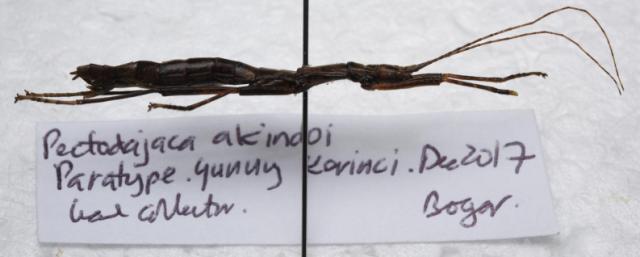 Pectodajaca akindoi
Paratype. Gunung Korinci. Dec 2017
local collector. Bogor.